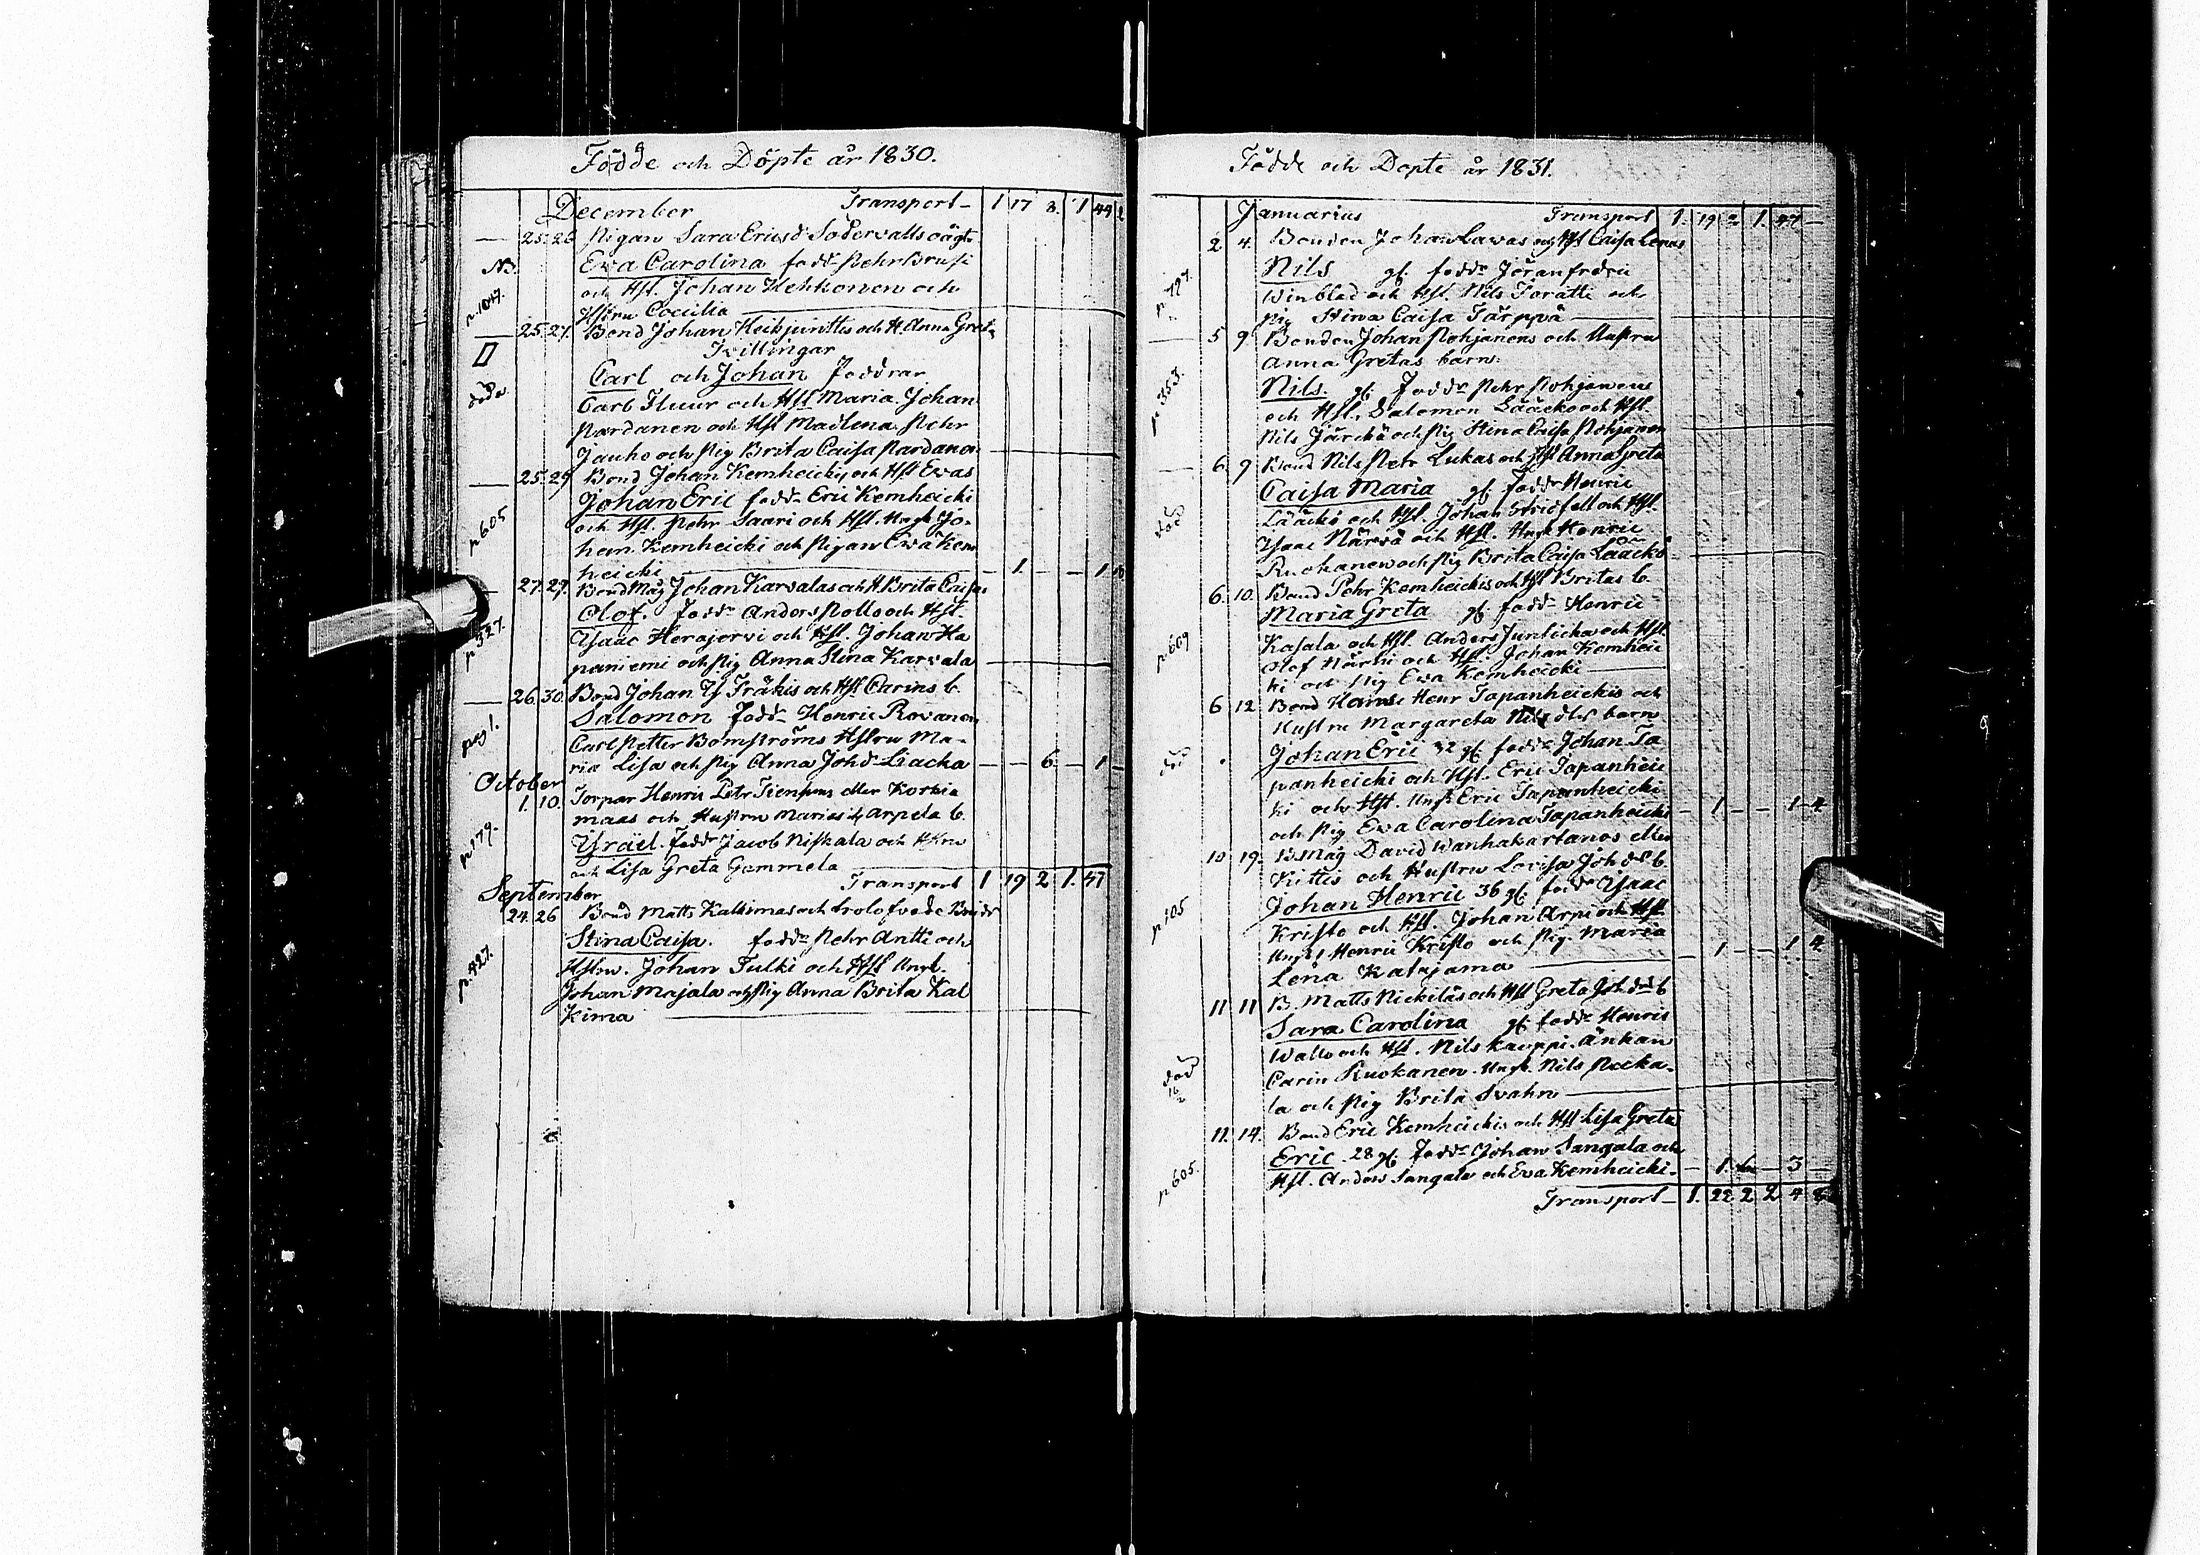 Födde och Döpte år 1830.
December Transport 1 17 3. 1 44 2
25. 26 Pigan Sara Ericsd Södervalls oägt.
NB. Ewa Carolina fadd. Pehr Brusi
p. 1047. och Hst. Johan Hehkonen och
Hstru Cecilia
25. 27. Bond Johan Heikjunttis och H Anna Greta
Tvillingar
döda Carl och Johan faddrar
Carl Fluur och Hst Maria. Johan
Pardanen och Hst Madlena Pehr
Jauho och Pig Brita Caisa Pardanen
25. 29 Bond Johan Kemheicki, och Hst Ewas
Johan Eric fadd. Eric Kemheicki
p 605 och Hst. Pehr Saari och Hst. Ungk Jo-
han Kemheicki och Pigan Ewa Kem
heicki 1. 1
27. 29. Bond Måg Johan Karvalas och H Brita Caisas
Olof. fadd. Anders Pollo och Hst
p 527. Isaac Herajervi och Hst. Johan Ha
paniemi och Pig Anna Stina Karvala
26. 30. Bond Johan Träkis och Hst Carins b.
Salomon fadd. Henric Rovanen
pag 1. Carl Petter Bomströms Hstru Ma-
ria Lisa och Pig Anna Johd. Liacka 6. 1
October
1. 10. Torpar Henric Petr eller Korkia
maas och Hustru Marias Arpela b.
p 179. Isräel. fadd. Jacob Niskala och Hstru
och Lisa Greta Gammela
Transport 1 19 2 1. 47
September
24. 26 Bond Matts Kalkimas och trolofvade Bruds
Stina Caisa. fadd. Pehr Antti och
p. 427. Hstru. Johan Tulki och Hst Ungk.
Johan Majala och Pig Anna Brita Kal
kima
Födde och Döpte år 1831.
Januarius Transport 1. 19 2 1. 47
2 4. Bonden Johan Lavas och Hst Caisa Lenas
Nils gf. fadd. Jöran fredric
p. 797. Winblad och Hst. Nils Toratti och
Pig Stina Caisa Törppä
5 9 Bonden Johan Pohjanens och Hustru
Anna Gretas barn:
p 353. Nils. gf. fadd. Pehr Pohjanens
och Hst. Salomon Lääcko och Hst.
Nils Järckö och Pig Stina Caisa Pohjanen
6. 9 Bond Nils Petr Lukas och Hst Anna Greta
Caisa Maria gf. fadd. Henric
död Lääckö och Hst. Johan Stridfelt och Hst.
Isaac Närvä och Hst. Ungk Henric
Ruokanen och Pig Brita Caisa Lääckö
6. 10. Bond Pehr Kemheickis och Hst Britas b.
Maria Greta gf. fadd. Henric
p. 609 Kasala och Hst. Anders Junticka och Hst.
Olof Närhi och Hst. Johan Kemheic
ki och Pig Ewa Kemheicki
6 12 Bond Henr Tapanheickis och
Hustru Margareta Nilsdtrs barn
död Johan Eric 32 gf. fadd. Johan Ta
panheicki och Hst. Eric Tapanheic
ki och Hst. Ungk Eric Tapanheicki
och Pig Ewa Carolina Tapanheicki 1 1 4.
10 19. B Måg David Wanhakartanos eller
Kittis och Hustru Lovisa Johds b.
Johan Henric 36 gf. fadd. Isaac
p. 105 Kristo och Hst. Johan Arpi och Hst
Ungk Henric Kristo och Pig. Maria
Lena Katajama 1 1. 4
11 11 B. Matts Nickiläs och Hst Greta Johds b
Sara Carolina gf. fadd. Henric
Wallo och Hst. Nils Kauppi. Änkan
död 16/2 Carin Ruokanen. Ungk. Nils Pecka-
la och Pig Brita Svahn
11. 14. Bond Eric Kemheickis och Hst Lisa Greta
Eric 28 gf. fadd. Johan Sangala och
p 605. Hst. Anders Sangala och Ewa Kemheicki. 1. 3
Transport 1. 22 2 2 4 8